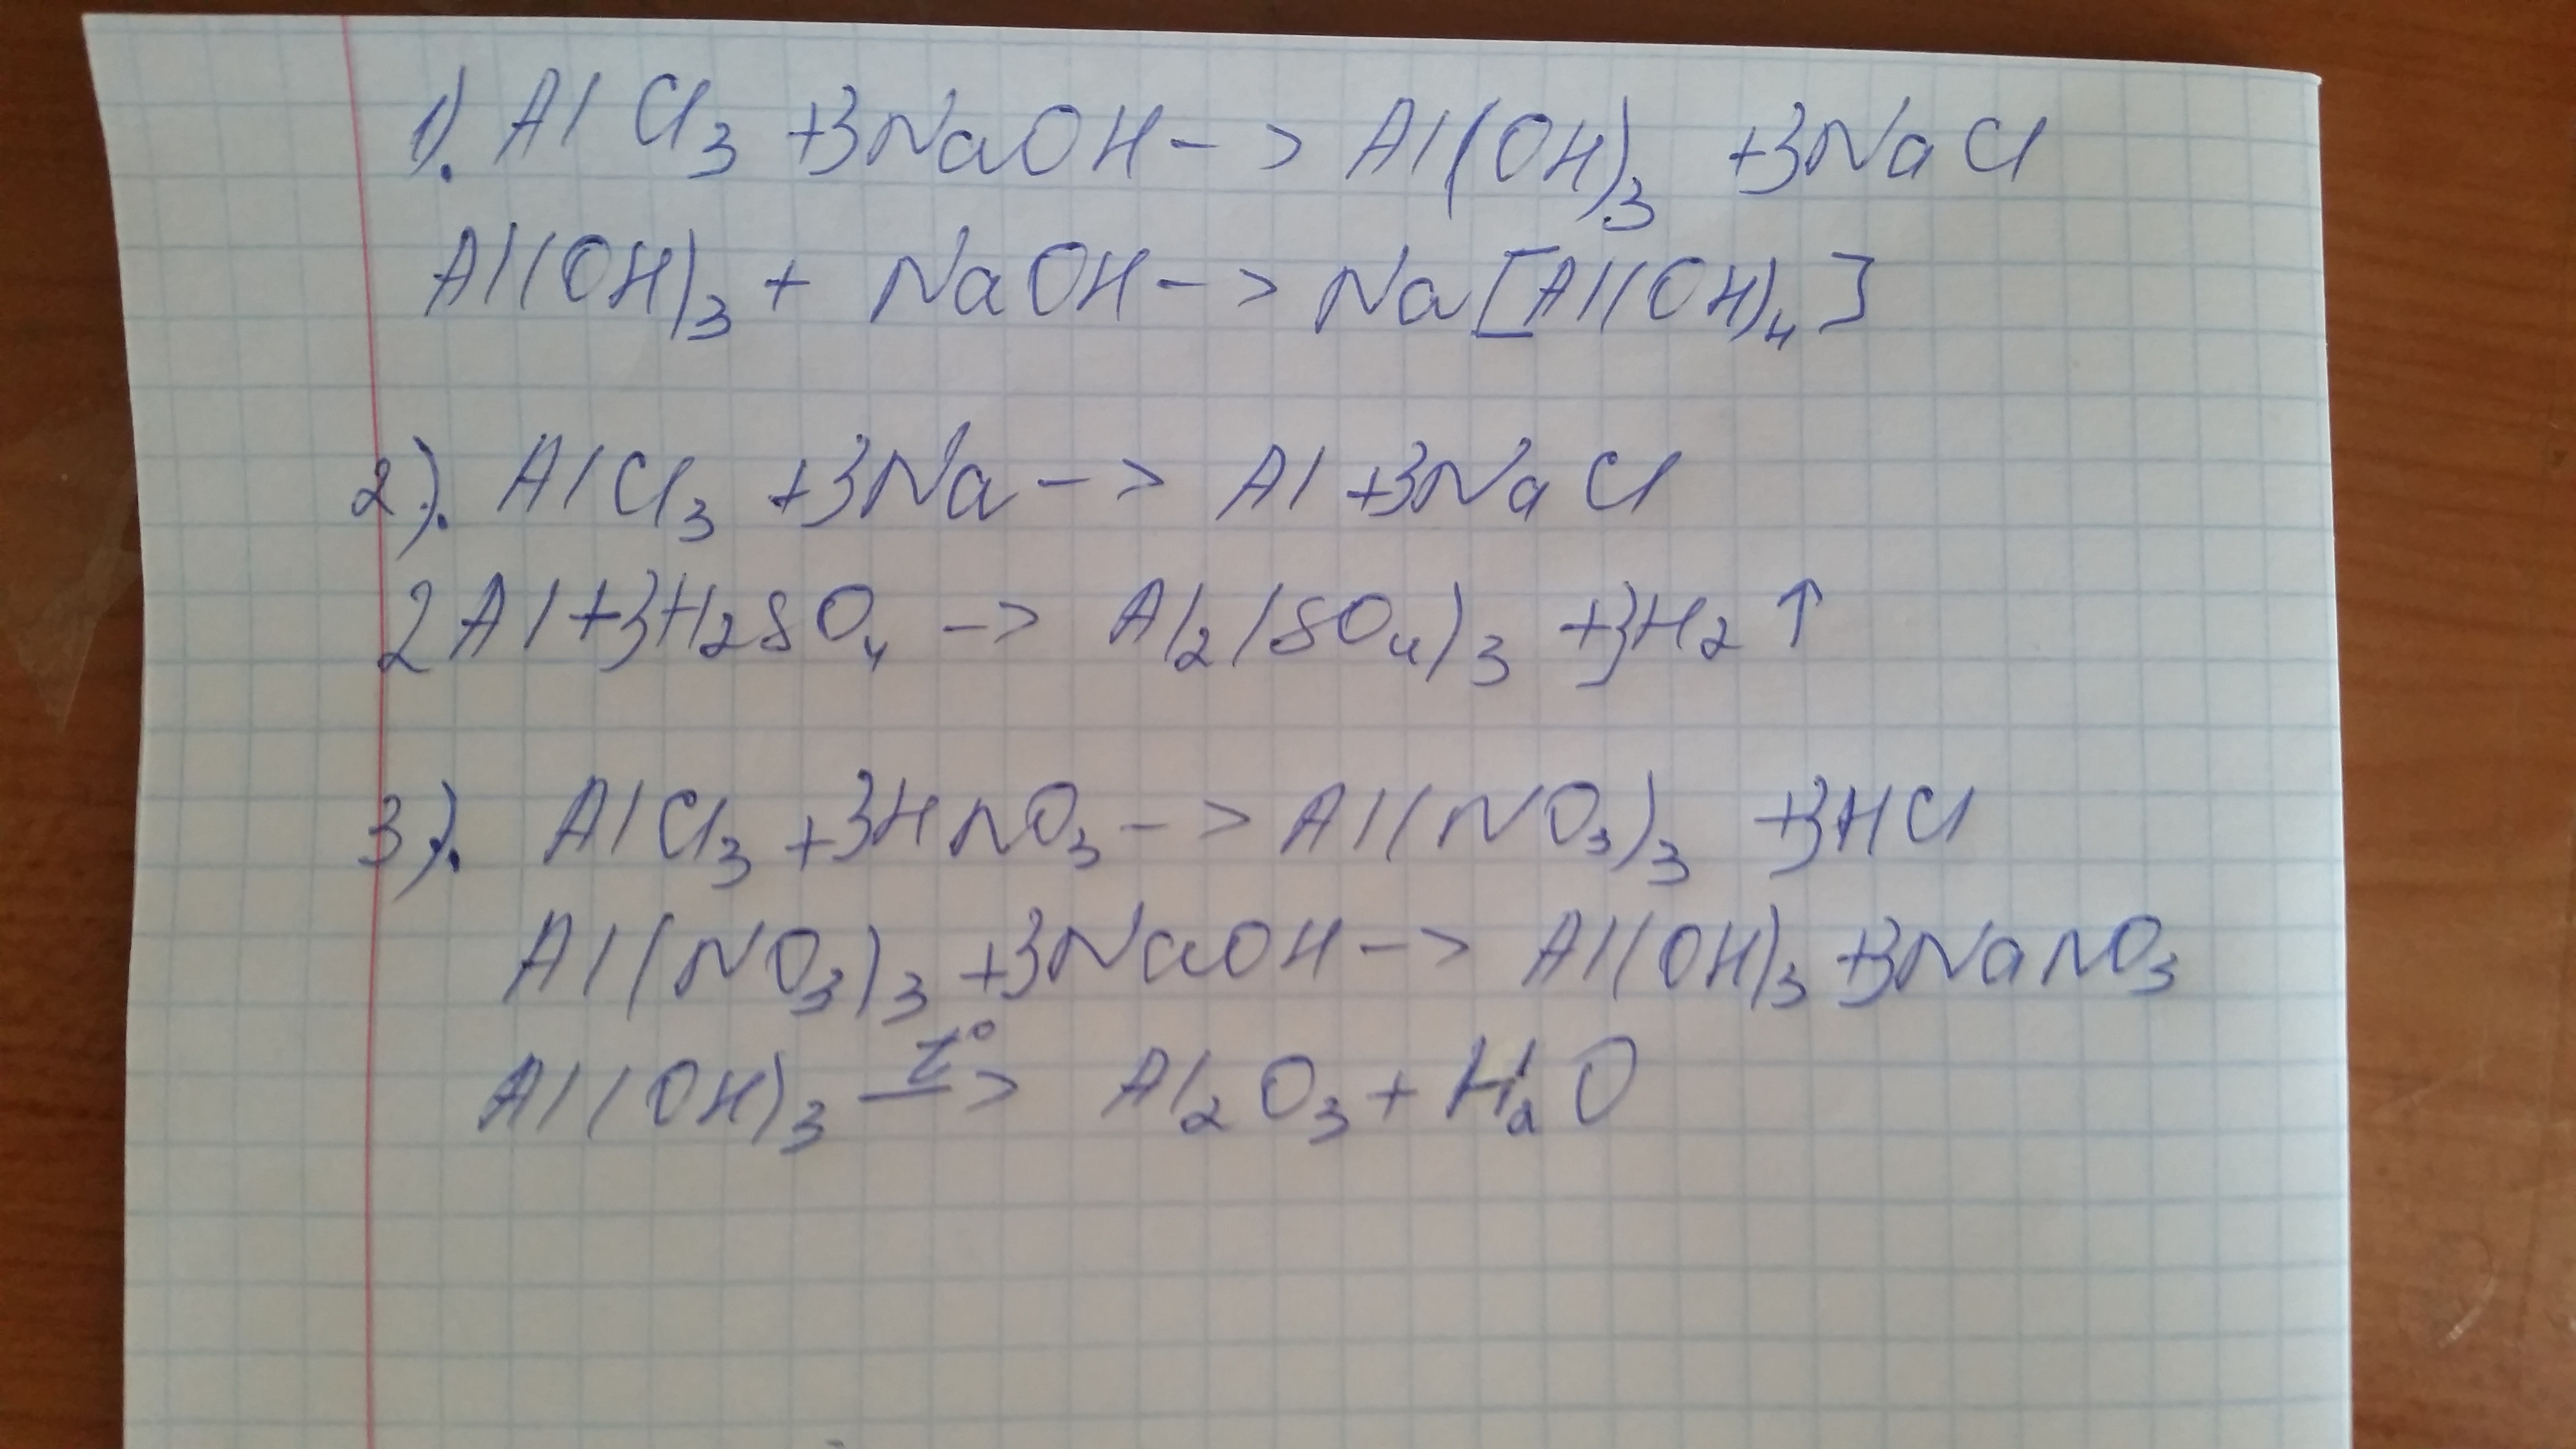 1). AlCl₃ +3NaOH -> Al(OH)₃ +3NaCl
Al(OH)₃ + NaOH -> Na[Al(OH)₄]
2). AlCl₃ +3Na -> Al +3NaCl
2Al+3H₂SO₄ -> Al₂(SO₄)₃ +3H₂↑
3). AlCl₃ +3HNO₃ -> Al(NO₃)₃ +3HCl
Al(NO₃)₃ +3NaOH -> Al(OH)₃ +3NaNO₃
Al(OH)₃ —t°—> Al₂O₃ + H₂O